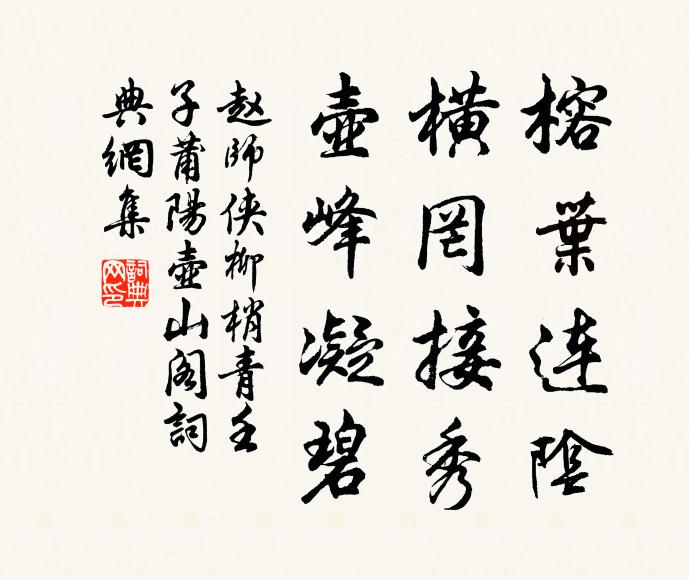 榕葉连陰
橫罔接秀
壺峰凝碧
赵師俠柳梢青壬
子莆陽壺山阁詞
典網集
詞典
网印